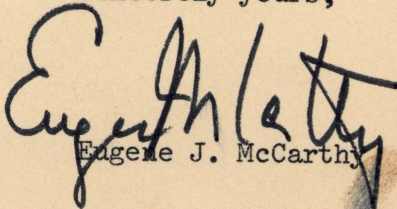 yours,
Eugene McCarthy
Eugene J. McCarthy